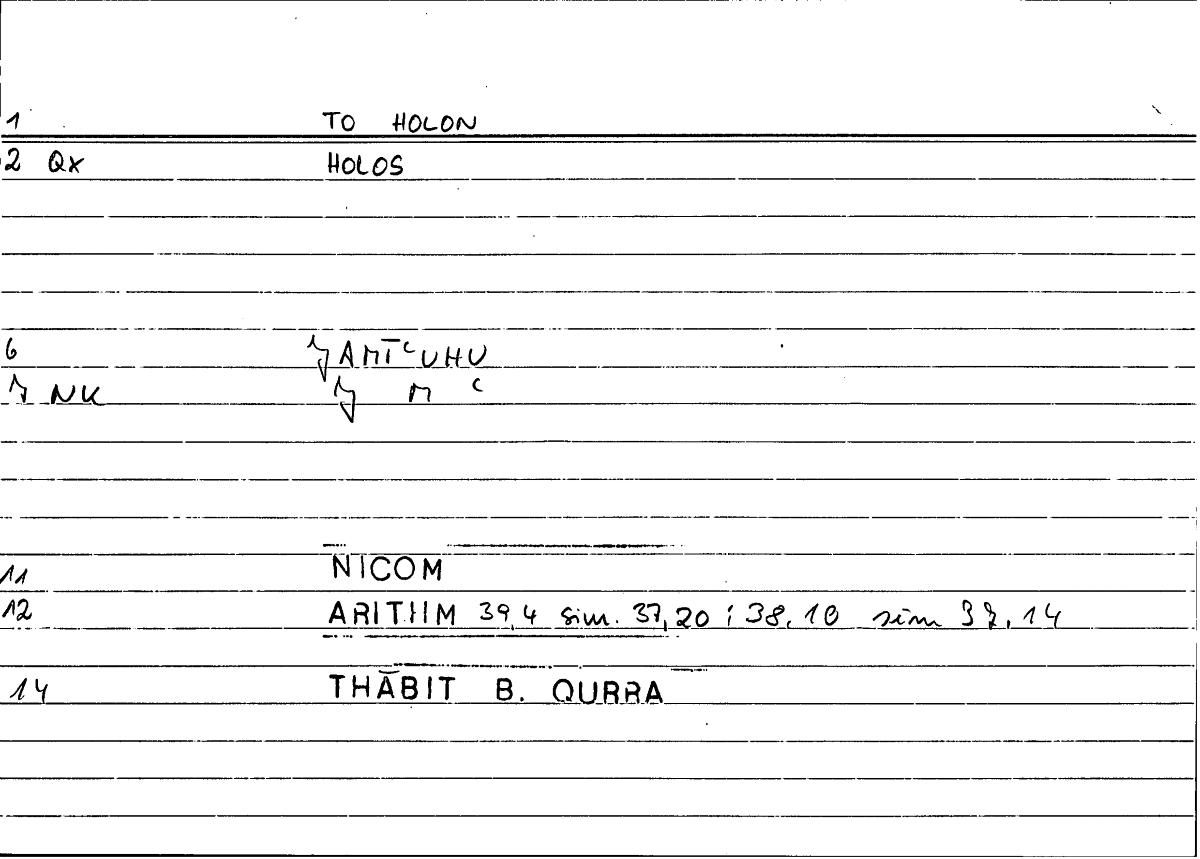 1 TO HOLON
2 QX HOLOS
6 ǧAMĪʿUHU
7 NK ǧ M ʿ
11 NICOM
12 ARITHM 39,4 sim. 37,20 ; 38,10 sim
14 THĀBIT B. QURRA